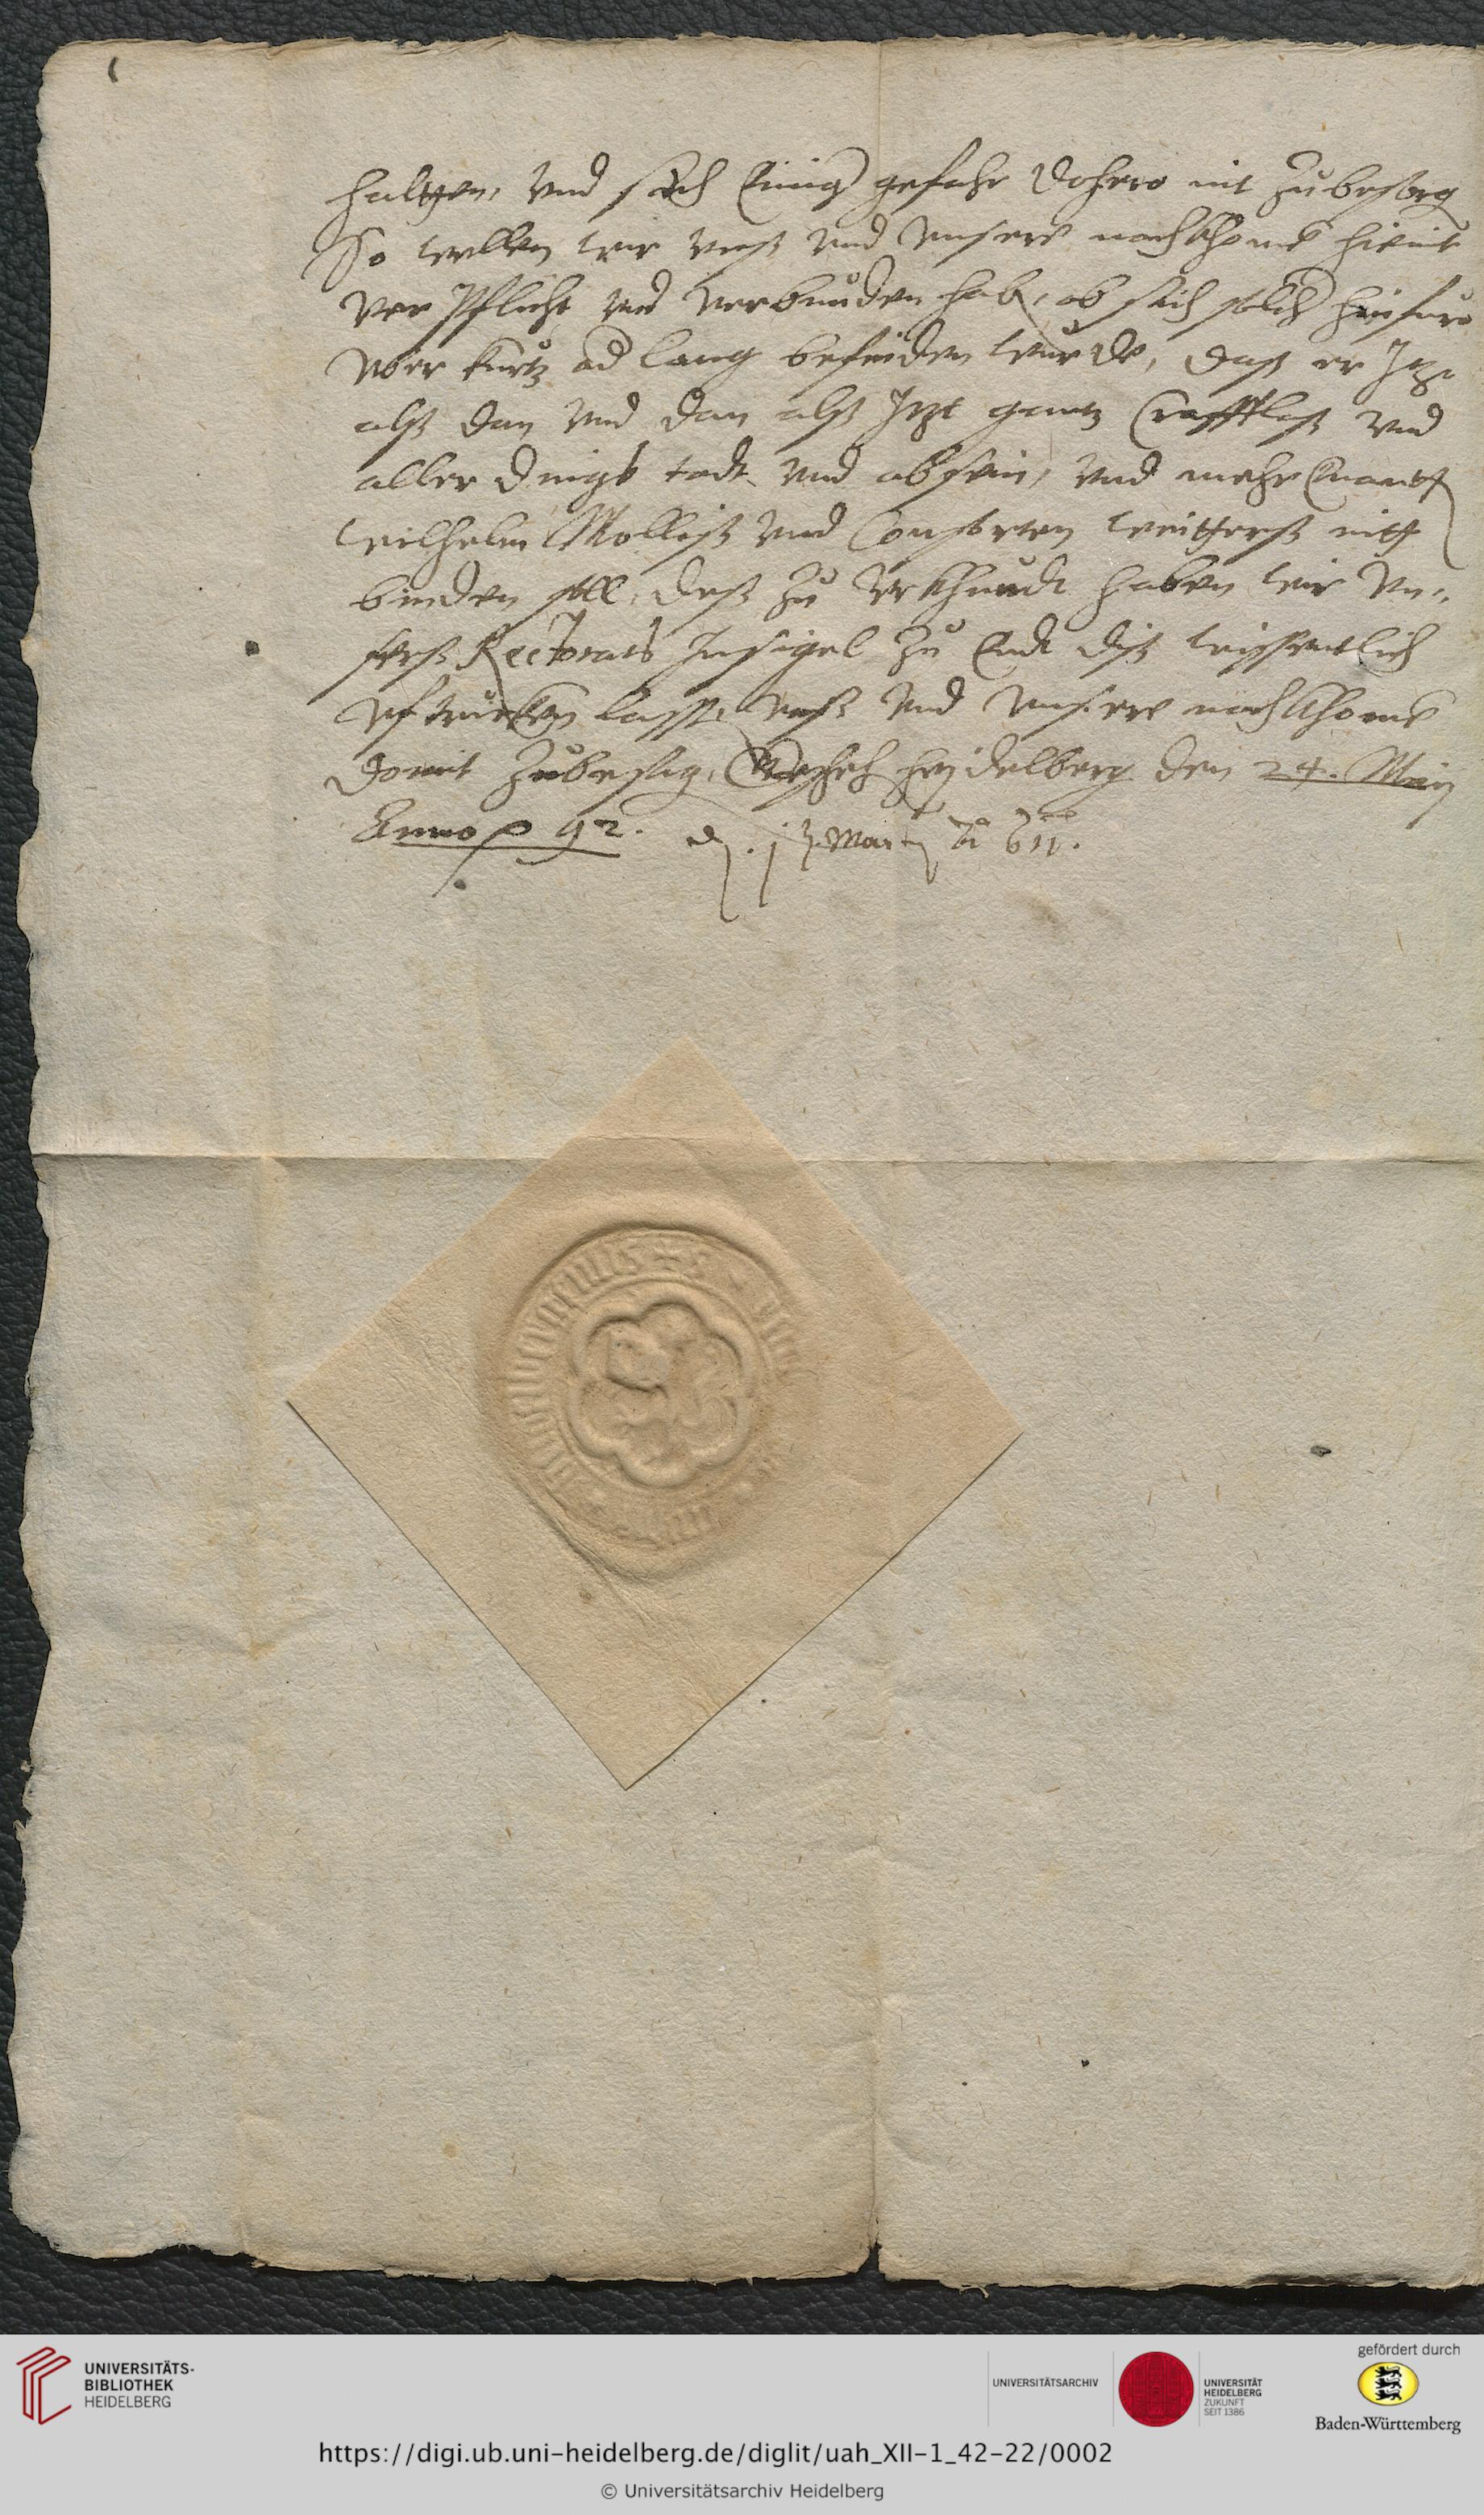 haltten, vnd sich Einig gefahr dohero nit zubesorg
So wollen wir vnß vnd vnsere nachkhome hiemit
ver Pflicht vnd verbunden hab, ob sich solch hinfuro
vber kurtz od lang befinden wurde, daß er Jtzt
alß dan vnd dan alß Jtzt gantz Crafftloß vnd
aller dings todt vnd absein, vnd mehr
wilhelm Molleß vnd Consorten weitterß nitt
binden soll, deß zu vrkhundt haben wir vn-
serß Rectorats Insigel zu Endt diß wissentlich
vftrucken lassen vnß vnd vnsere nachkhome
domit zubesag, Gescheh heidelberg den 24. Maij
Anno p 92.
UNIVERSITÄTS-
BIBLIOTHEK
HEIDELBERG
UNIVERSITÄTSARCHIV
UNIVERSITÄT
HEIDELBERG
ZUKUNFT
SEIT 1386
gefördert durch
Baden-Württemberg
https://digi.ub.uni-heidelberg.de/diglit/uah_XII-1_42-22/0002
© Universitätsarchiv Heidelberg